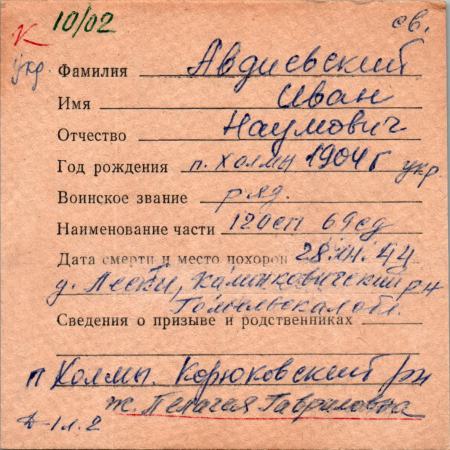 К 10/02 св.
укр
Фамилия Авдиевский
Имя Иван
Отчество Наумович
Год рождения п. Холмы 1904 г укр.
Воинское звание ряд.
Наименование части 120 сп 69 сд
Дата смерти и место похорон 28.XII.44
д. Пески, Калинковичский рн
Гомельская обл.
Сведения о призыве и родственниках
п Холмы. Корюковский рн
ж. Пелагея Гавриловна